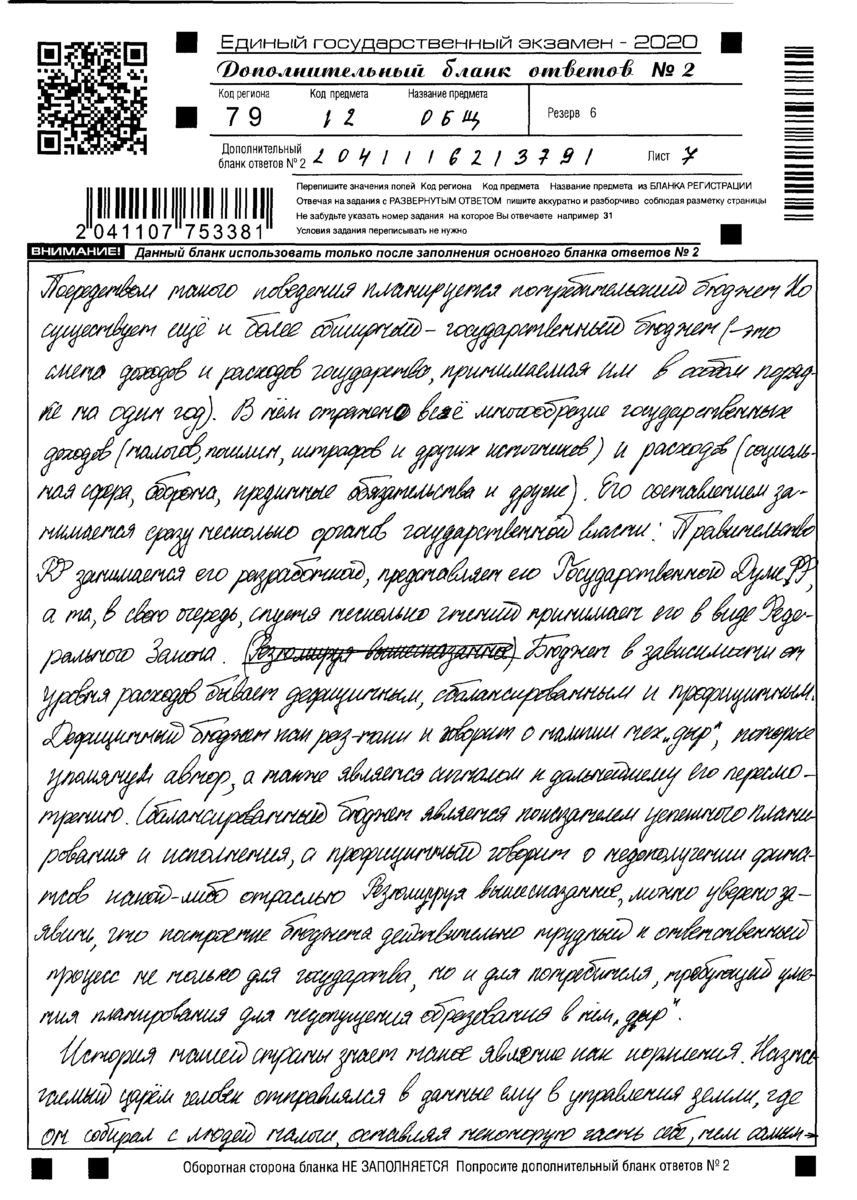 Единый государственный экзамен - 2020
Дополнительный бланк ответов № 2
Код региона Код предмета Название предмета
79 12 ОБЩ
Резерв 6
Дополнительный бланк ответов № 2 2041116213791 Лист 7
Перепишите значения полей Код региона Код предмета Название предмета из БЛАНКА РЕГИСТРАЦИИ
Отвечая на задания с РАЗВЕРНУТЫМ ОТВЕТОМ пишите аккуратно и разборчиво соблюдая разметку страницы
Не забудьте указать номер задания на которое Вы отвечаете например 31
Условия задания переписывать не нужно
2 041107 753381
ВНИМАНИЕ! Данный бланк использовать только после заполнения основного бланка ответов № 2
Посредством такого поведения планируется потребительский бюджет Но
существует ещё и более обширный – государственный бюджет (–это
смета доходов и расходов государства, принимаемая им в особом поряд-
ке на один год). В нём отражено всё многообразие государственных
доходов (налогов, пошлин, штрафов и других источников) и расходов (социаль-
ная сфера, оборона, кредитные обязательства и другие). Его составлением за-
нимается сразу несколько органов государственной власти: Правительство
РФ занимается его разработкой, представляет его Государственной Думе РФ,
а та, в свою очередь, спустя несколько чтений принимает его в виде Феде-
рального Закона. (Резюмируя вышесказанное) Бюджет в зависимости от
уровня расходов бывает дефицитным, сбалансированным и профицитным.
Дефицитный бюджет как раз-таки и говорит о наличии тех „дыр", которые
упомянул автор, а также является сигналом к дальнейшему его пересмо-
трению. Сбалансированный бюджет является показателем успешного плани-
рования и исполнения, а профицитный говорит о недополучении фина-
нсов какой-либо отраслью Резюмируя вышесказанное, можно уверено за-
явить, что построение бюджета действительно трудный и ответственный
процесс не только для государства, но и для потребителя, требующий уме-
ния планирования для недопущения образования в нём „дыр".
История нашей страны знает такое явление как кормления. Назна-
чаемый царём человек отправлялся в данные ему в управления земли, где
он собирал с людей налоги, оставляя некоторую часть себе, тем самым→
Оборотная сторона бланка НЕ ЗАПОЛНЯЕТСЯ Попросите дополнительный бланк ответов № 2